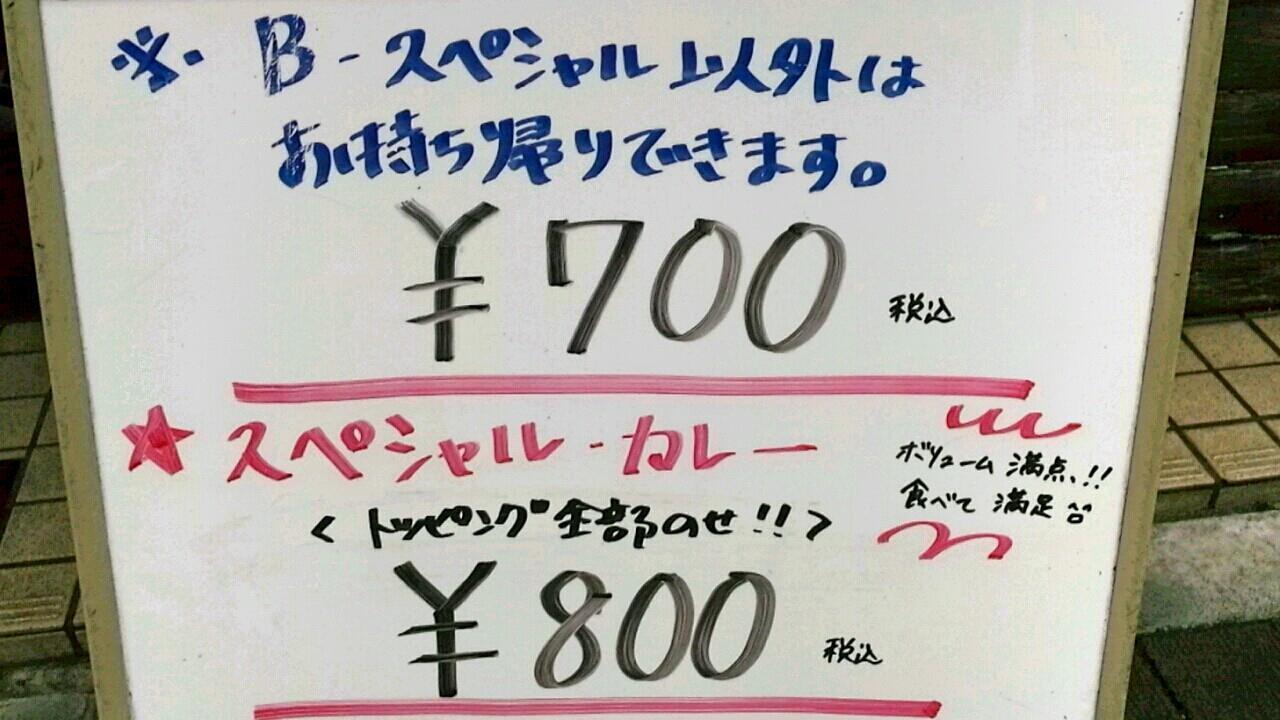 ※. B-スペシャル以外は
お持ち帰りできます。
¥700 税込
★スペシャル・カレー
ボリューム満点!!
食べて 満足
<トッピング全部のせ!!>
¥800 税込